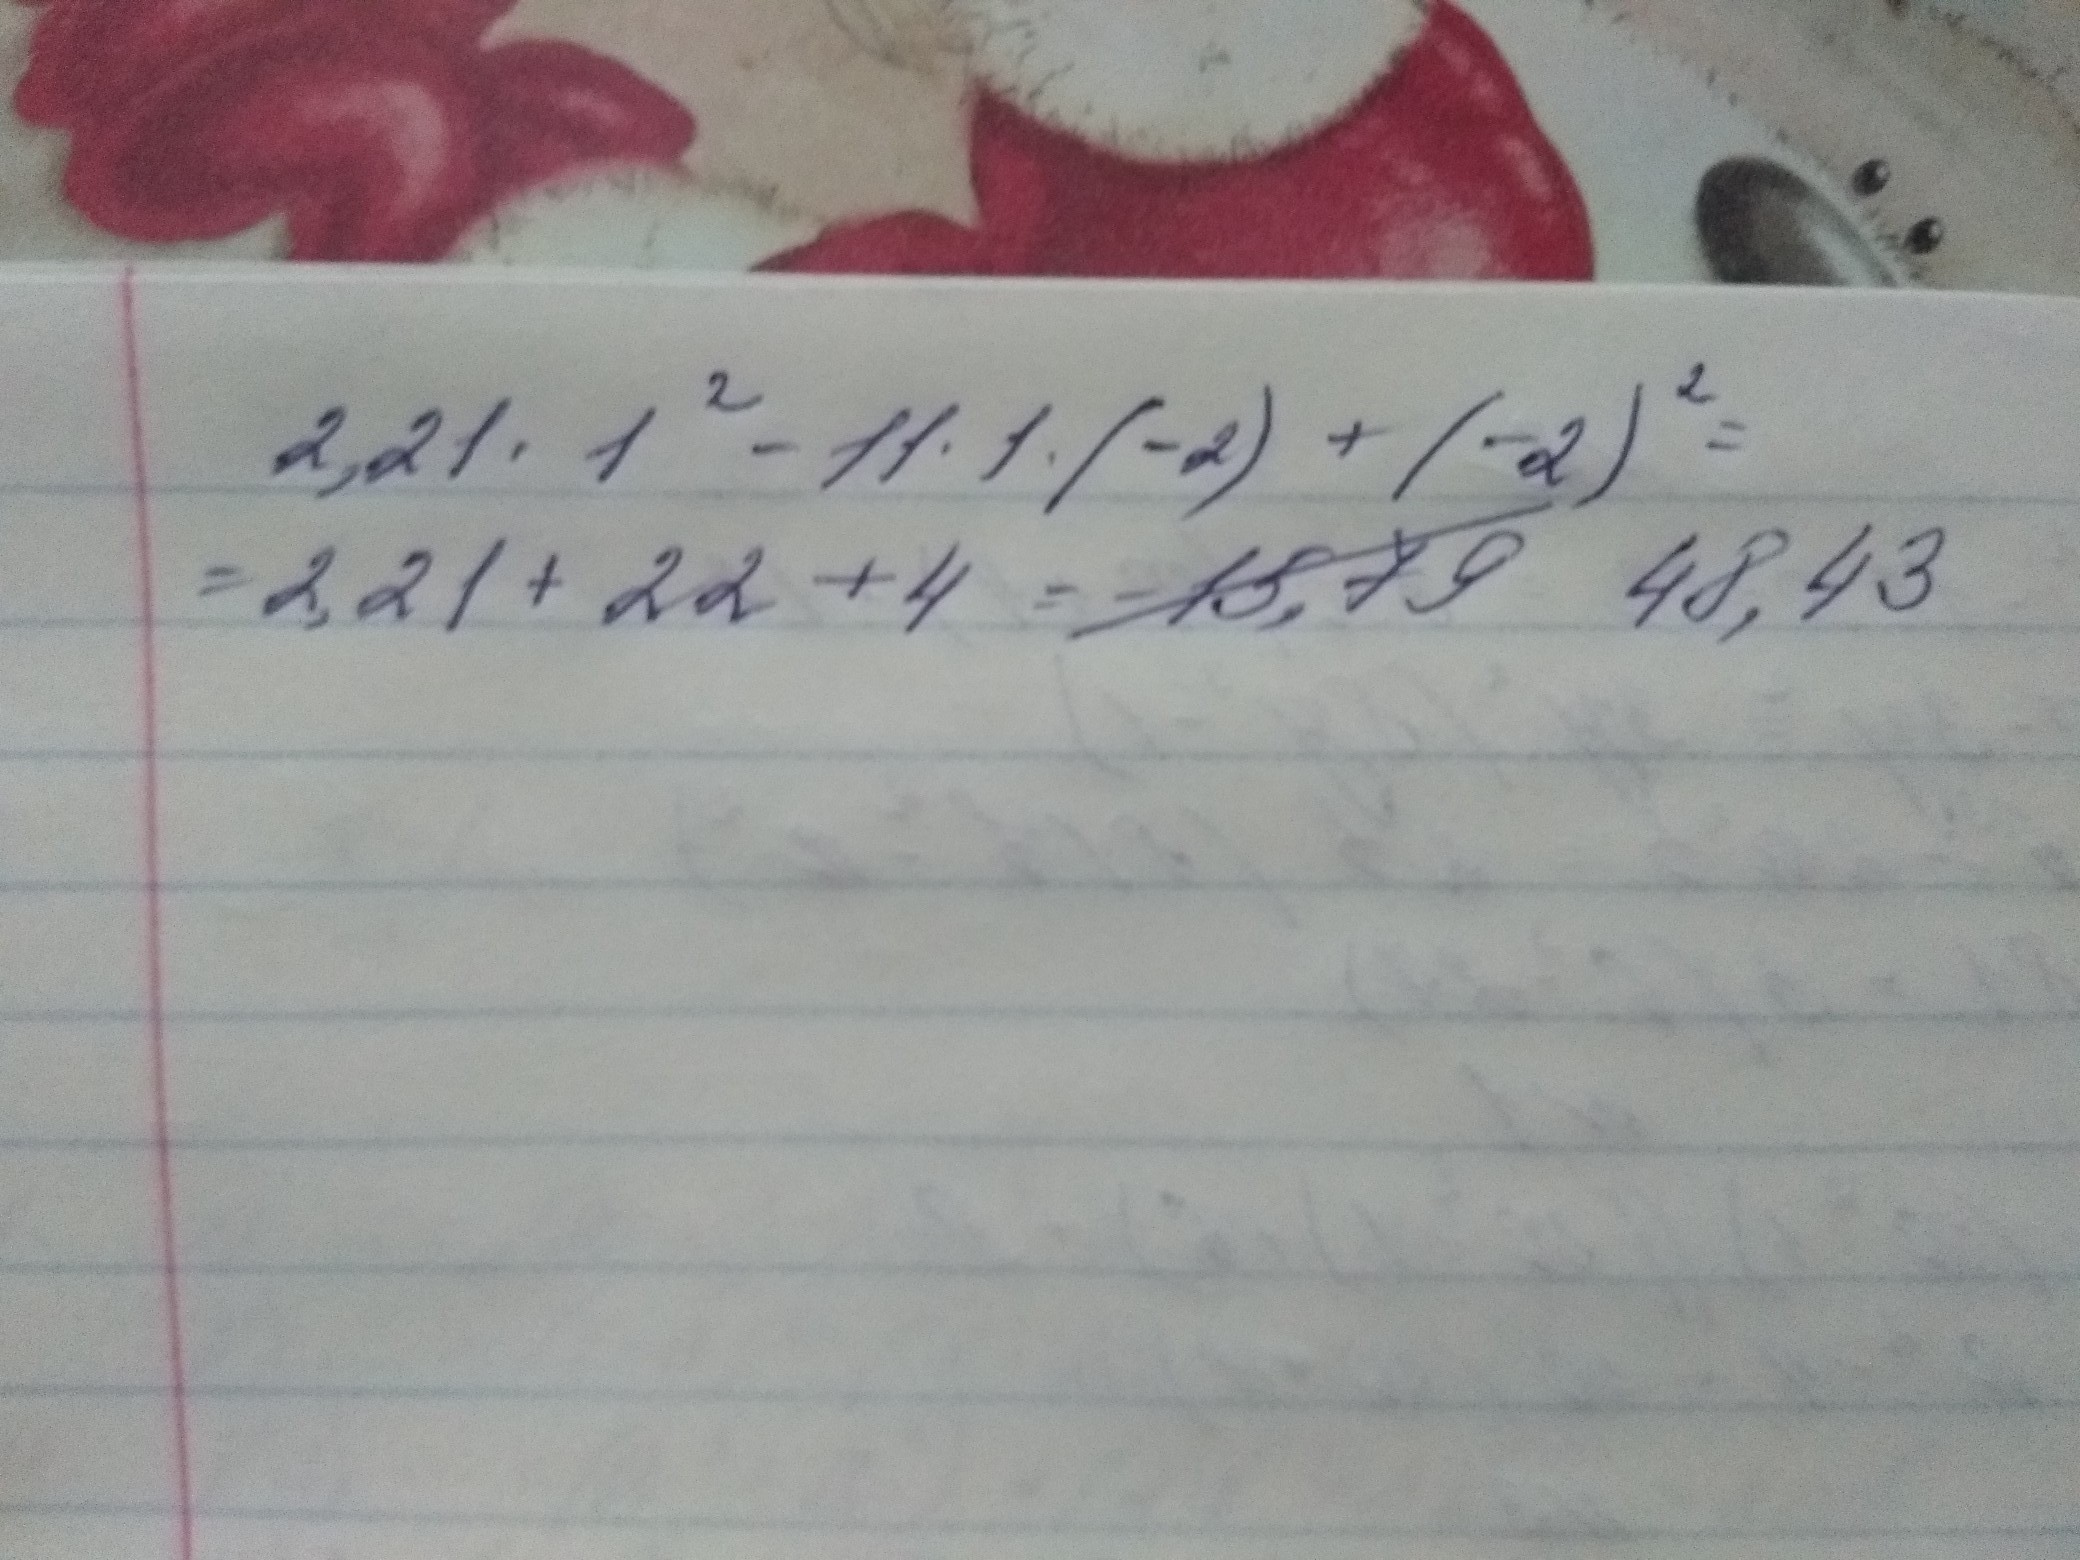 2,21 · 1² - 11 · 1 · (-2) + (-2)² =
= 2,21 + 22 + 4 = -15,79 48,43